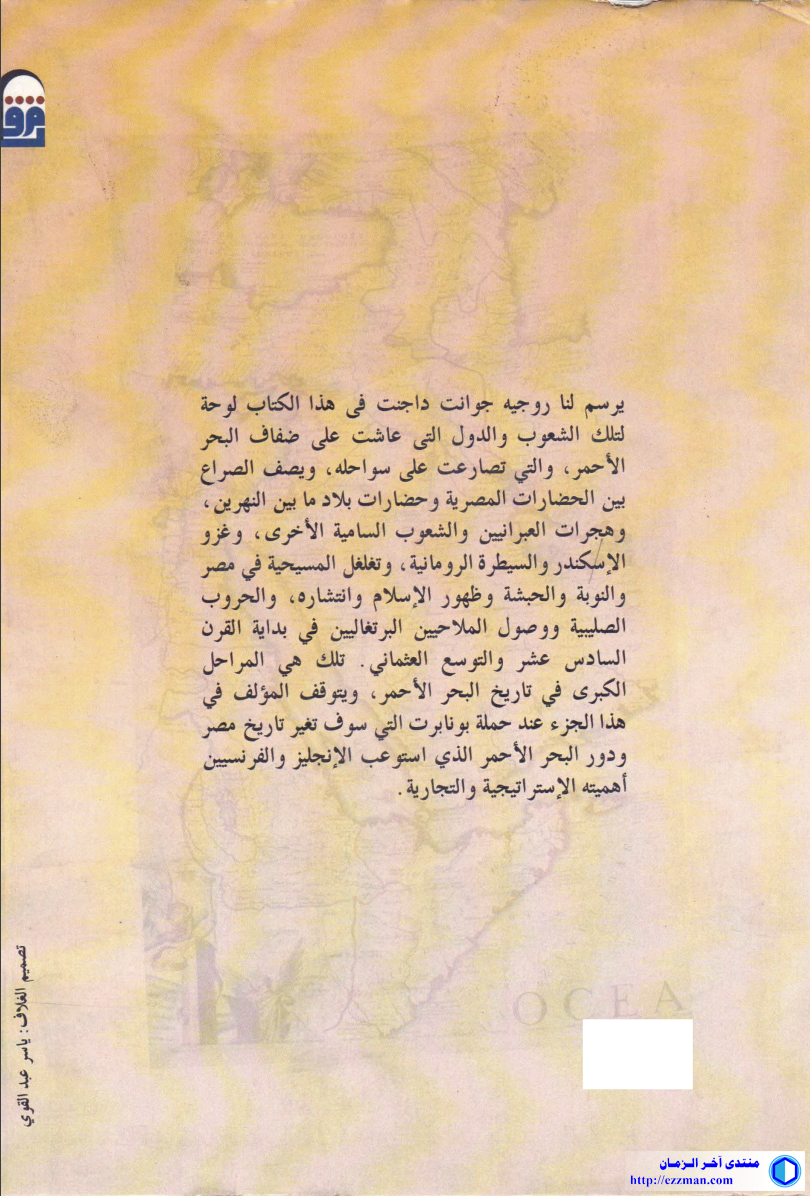 يرسم لنا روجيه جوانت داجنت فى هذا الكتاب لوحة
لتلك الشعوب والدول التى عاشت على ضفاف البحر
الأحمر، والتي تصارعت على سواحله، ويصف الصراع
بين الحضارات المصرية وحضارات بلاد ما بين النهرين،
وهجرات العبرانيين والشعوب السامية الأخرى، وغزو
الإسكندر والسيطرة الرومانية، وتغلغل المسيحية في مصر
والنوبة والحبشة وظهور الإسلام وانتشاره، والحروب
الصليبية ووصول الملاحيين البرتغاليين في بداية القرن
السادس عشر والتوسع العثماني. تلك هي المراحل
الكبرى في تاريخ البحر الأحمر، ويتوقف المؤلف في
هذا الجزء عند حملة بونابرت التي سوف تغير تاريخ مصر
ودور البحر الأحمر الذي استوعب الإنجليز والفرنسيين
أهميته الإستراتيجية والتجارية.
تصميم الغلاف: ياسر عبد القوي
OCEA
منتدى آخر الزمان
http://ezzman.com